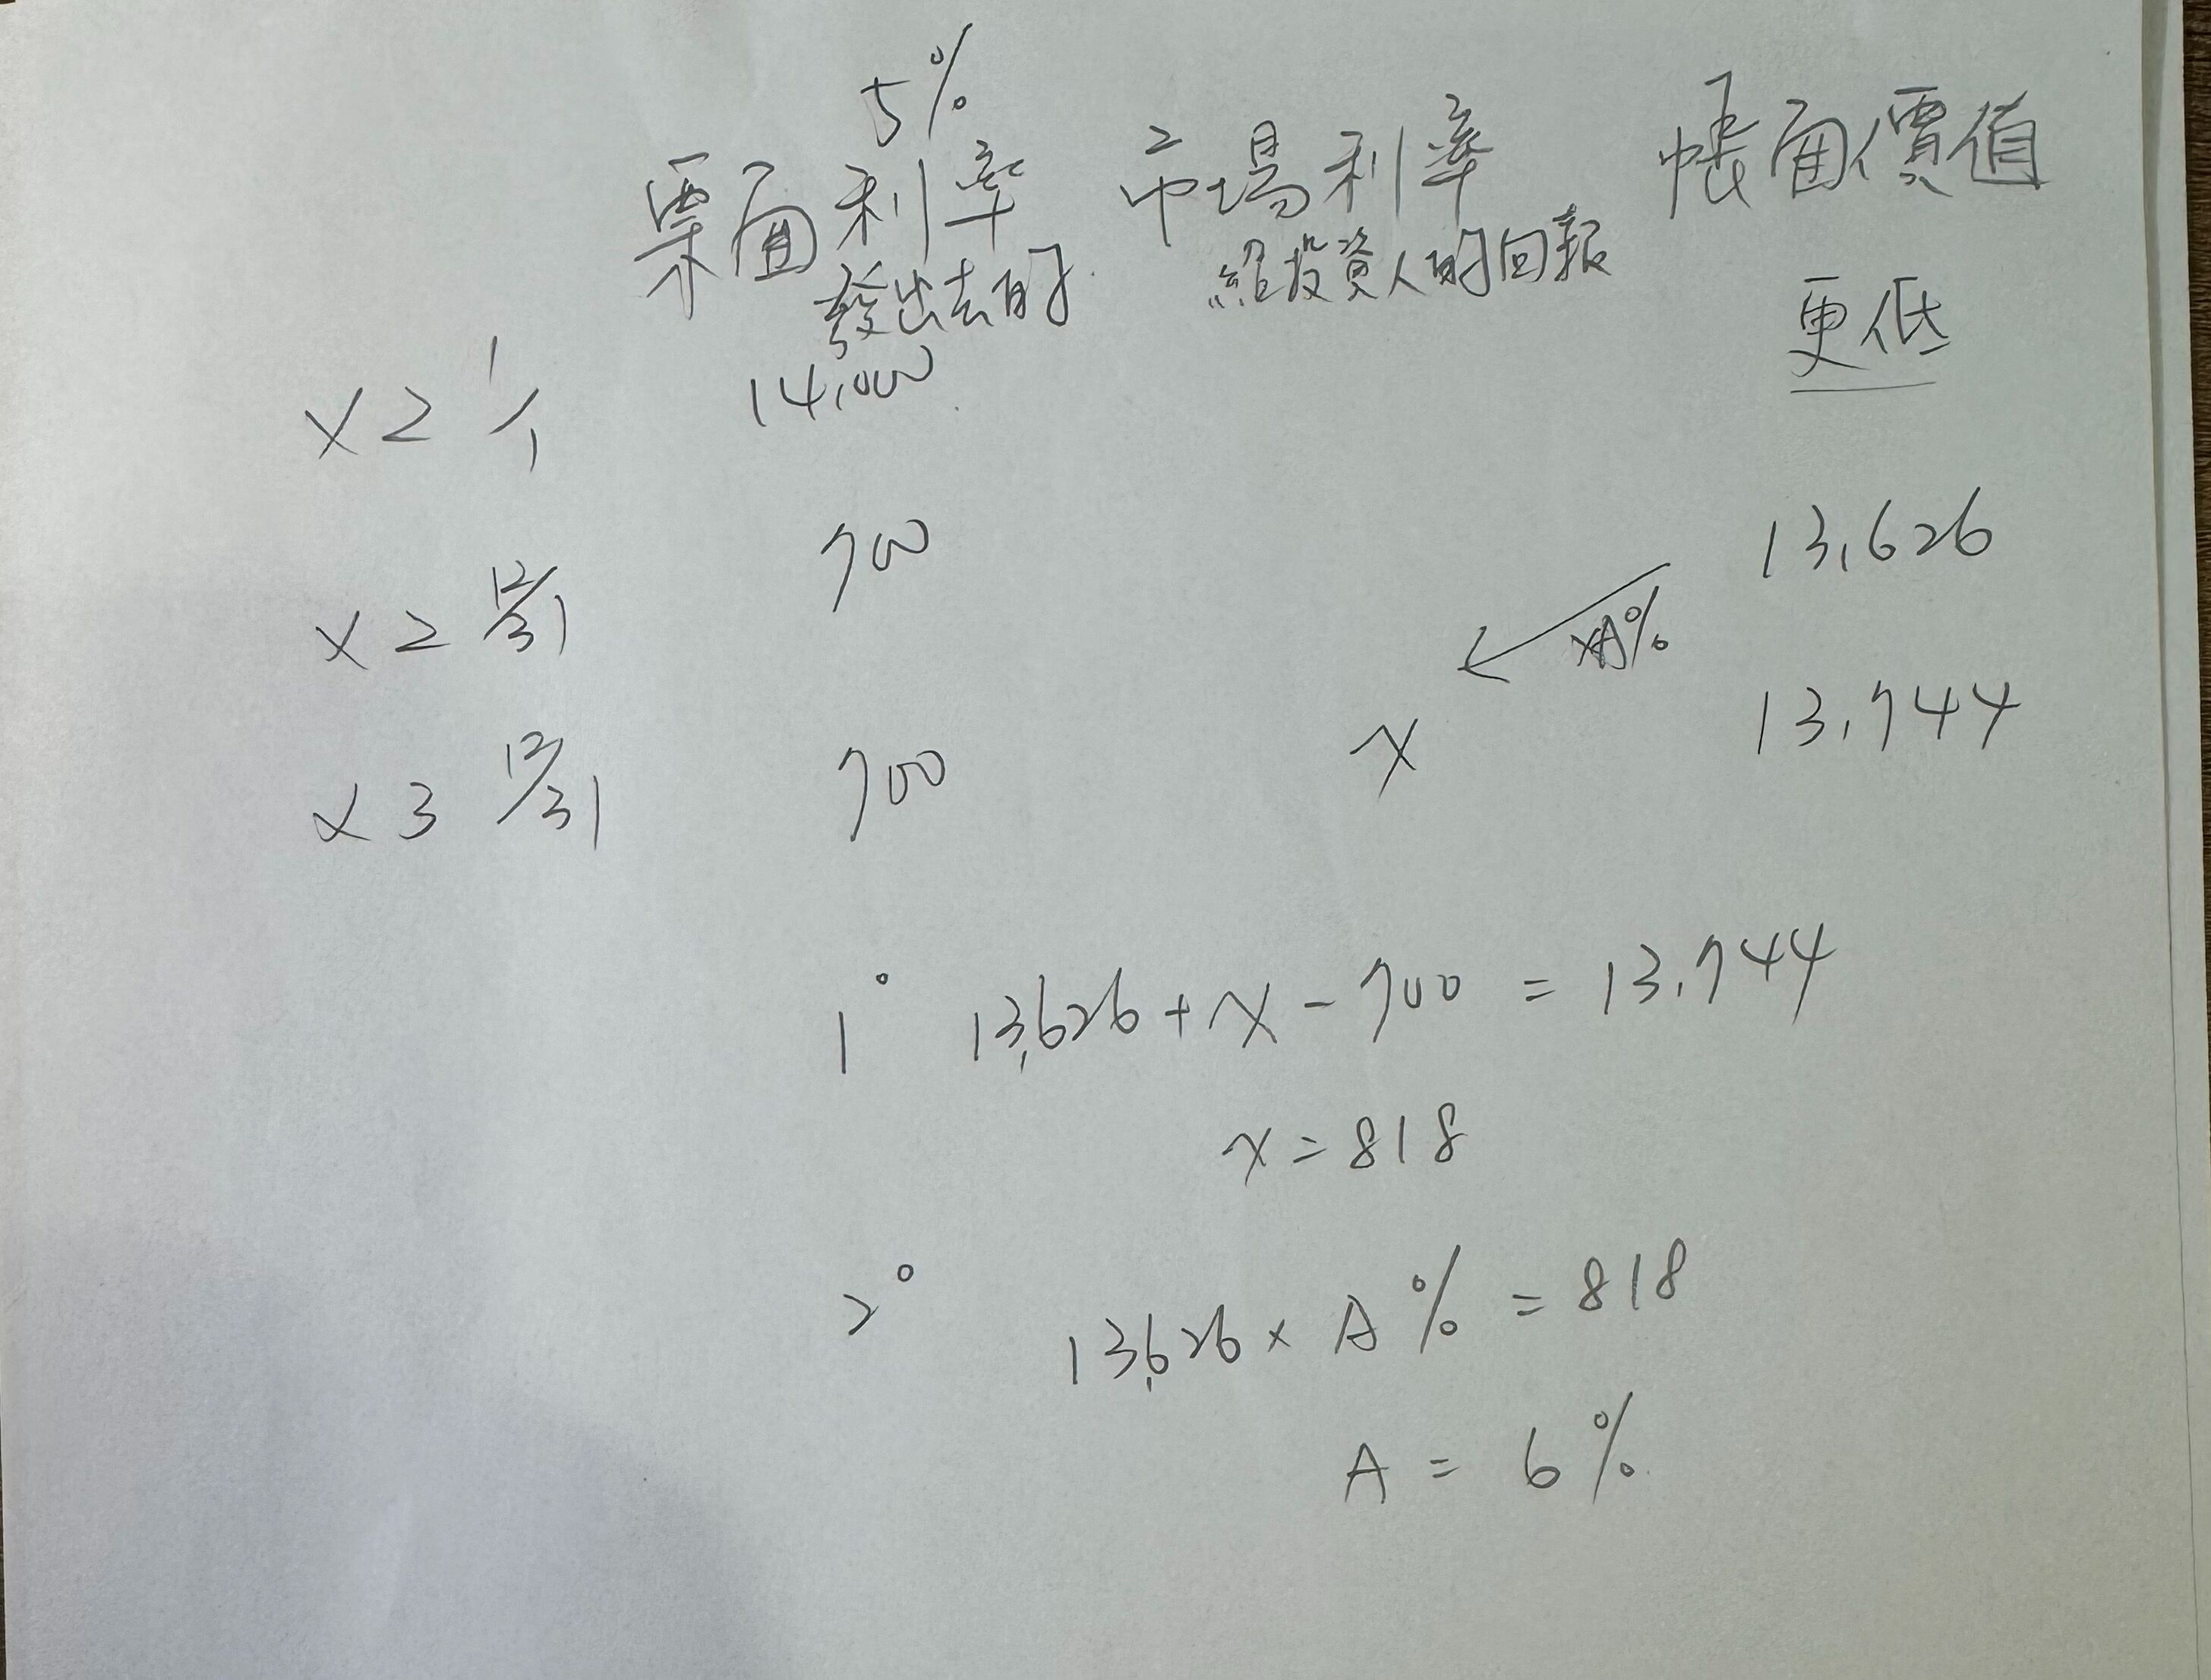 5%
票面利率 市場利率 帳面價值
發出去的 給投資人的回報
更低
X2 1/1 14,000
700 13,626
X2 12/31
xA%
X3 12/31 700 x 13,744
1° 13,626 + x - 700 = 13,744
x = 818
2° 13,626 x A% = 818
A = 6%